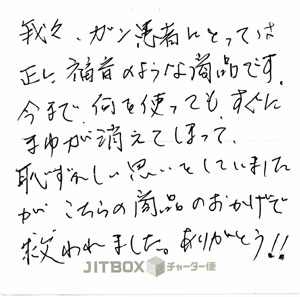 我々、ガン患者にとっては
正に福音のような商品です。
今まで何を使っても、すぐに
まゆが消えてしまって、
恥ずかしい思いをしていました
が こちらの商品のおかげで
救われました。ありがとう!!
JITBOXチャーター便